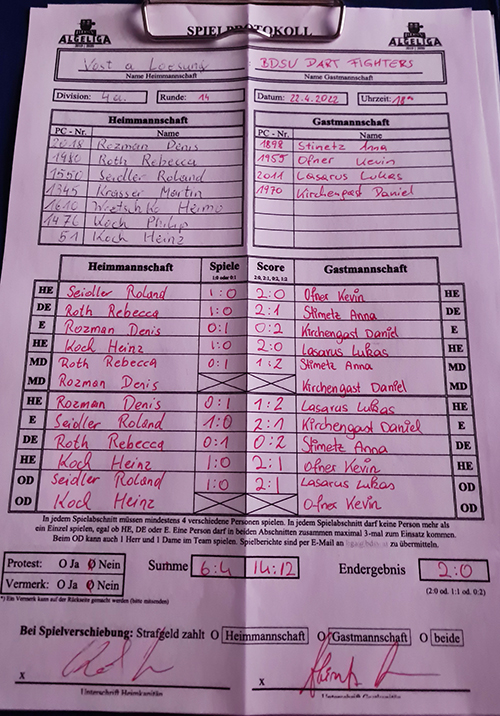 ALGELIGA SPIELPROTOKOLL ALGELIGA
Vost a Loesung BDSU DART FIGHTERS
Name Heimmannschaft Name Gastmannschaft
Division: 4a. Runde: 14 Datum: 22.4.2022 Uhrzeit: 18
Heimmannschaft Gastmannschaft
PC - Nr. Name PC - Nr. Name
2018 Rozman Denis 1898 Stinetz Anna
1980 Roth Rebecca 1955 Ofner Kevin
1550 Seidler Roland 2011 Lasarus Lukas
1345 Krasser Martin 1970 Kirchengast Daniel
1610 Heimo
1476 Koch Philip
51 Koch Heinz
Heimmannschaft Spiele Score Gastmannschaft
1:0 oder 0:1 2:0, 2:1, 0:2, 1:2
HE Seidler Roland 1:0 2:0 Ofner Kevin HE
DE Roth Rebecca 1:0 2:1 Stimetz Anna DE
E Rozman Denis 0:1 0:2 Kirchengast Daniel E
HE Koch Heinz 1:0 2:0 Lasarus Lukas HE
MD Roth Rebecca 0:1 1:2 Stimetz Anna MD
MD Rozman Denis Kirchengast Daniel MD
HE Rozman Denis 0:1 1:2 Lasarus Lukas HE
E Seidler Roland 1:0 2:1 Kirchengast Daniel E
DE Roth Rebecca 0:1 0:2 Stimetz Anna DE
HE Koch Heinz 1:0 2:1 Ofner Kevin HE
OD Seidler Roland 1:0 2:1 Lasarus Lukas OD
OD Koch Heinz Ofner Kevin OD
In jedem Spielabschnitt müssen mindestens 4 verschiedene Personen spielen. In jedem Spielabschnitt darf keine Person mehr als
ein Einzel spielen, egal ob HE, DE oder E. Eine Person darf in beiden Abschnitten zusammen maximal 3-mal zum Einsatz kommen.
Beim OD kann auch 1 Herr und 1 Dame im Team spielen. Spielberichte sind per E-Mail an zu übermitteln.
Protest: O Ja O Nein Summe 6:4 14:12 Endergebnis 2:0
Vermerk: O Ja O Nein (2:0 od. 1:1 od. 0:2)
*) Ein Vermerk kann auf der Rückseite gemacht werden (bitte mitsenden)
Bei Spielverschiebung: Strafgeld zahlt O Heimmannschaft O Gastmannschaft O beide
x x
Unterschrift Heimkapitän Unterschrift Gastkapitän